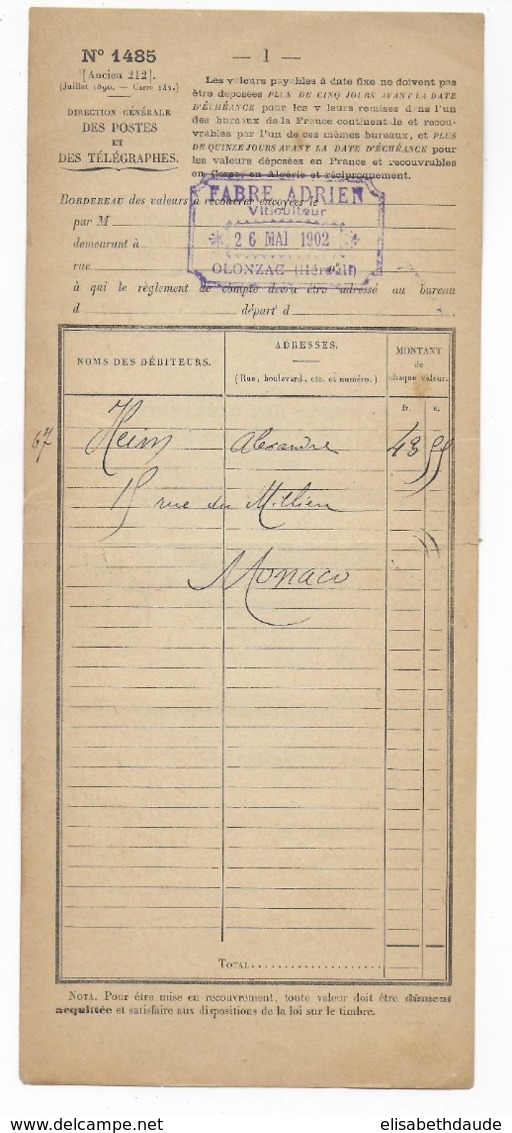 N° 1485
[Ancien 212].
(Juillet 1890. — Carré 142.)
DIRECTION GÉNÉRALE
DES POSTES
ET
DES TÉLÉGRAPHES.
— 1 —
Les valeurs payables à date fixe ne doivent pas
être déposées PLUS DE CINQ JOURS AVANT LA DATE
D'ÉCHÉANCE pour les v leurs remises dans l'un
des bureaux de la France continentale et recou-
vrables par l'un de ces mêmes bureaux, et PLUS
DE QUINZE JOURS AVANT LA DATE D'ÉCHÉANCE pour
les valeurs déposées en France et recouvrables
en Corse, en Algérie et réciproquement.
FABRE ADRIEN
Viticulteur
26 MAI 1902
OLONZAC (Hérault)
BORDEREAU des valeurs à recouvrer envoyées le
par M
demeurant à
rue
à qui le règlement de compte devra être adressé au bureau
d départ d
NOMS DES DÉBITEURS.
ADRESSES.
(Rue, boulevard, etc. et numéro.)
MONTANT
de
chaque valeur.
fr. c.
67 Heim Alexandre 43 55
15 rue du Milieu
Monaco
TOTAL
NOTA. Pour être mise en recouvrement, toute valeur doit être dûment
acquittée et satisfaire aux dispositions de la loi sur le timbre.
www.delcampe.net
elisabethdaude